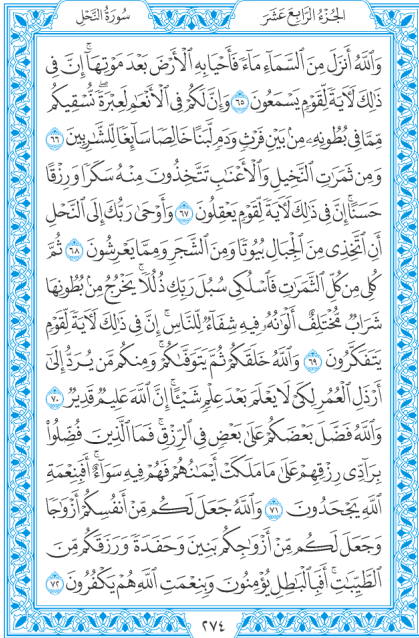 الجُزْءُ الرَّابِعَ عَشَرَ سُورَةُ النَّحْلِ
وَٱللَّهُ أَنزَلَ مِنَ ٱلسَّمَآءِ مَآءً فَأَحْيَا بِهِ ٱلْأَرْضَ بَعْدَ مَوْتِهَآۚ إِنَّ فِى
ذَٰلِكَ لَءَايَةً لِّقَوْمٍ يَسْمَعُونَ ٦٥ وَإِنَّ لَكُمْ فِى ٱلْأَنْعَٰمِ لَعِبْرَةًۖ نُّسْقِيكُم
مِّمَّا فِى بُطُونِهِۦ مِنۢ بَيْنِ فَرْثٍ وَدَمٍ لَّبَنًا خَالِصًا سَآئِغًا لِّلشَّٰرِبِينَ ٦٦
وَمِن ثَمَرَٰتِ ٱلنَّخِيلِ وَٱلْأَعْنَٰبِ تَتَّخِذُونَ مِنْهُ سَكَرًا وَرِزْقًا
حَسَنًاۗ إِنَّ فِى ذَٰلِكَ لَءَايَةً لِّقَوْمٍ يَعْقِلُونَ ٦٧ وَأَوْحَىٰ رَبُّكَ إِلَى ٱلنَّحْلِ
أَنِ ٱتَّخِذِى مِنَ ٱلْجِبَالِ بُيُوتًا وَمِنَ ٱلشَّجَرِ وَمِمَّا يَعْرِشُونَ ٦٨ ثُمَّ
كُلِى مِن كُلِّ ٱلثَّمَرَٰتِ فَٱسْلُكِى سُبُلَ رَبِّكِ ذُلُلًاۚ يَخْرُجُ مِنۢ بُطُونِهَا
شَرَابٌ مُّخْتَلِفٌ أَلْوَٰنُهُۥ فِيهِ شِفَآءٌ لِّلنَّاسِۗ إِنَّ فِى ذَٰلِكَ لَءَايَةً لِّقَوْمٍ
يَتَفَكَّرُونَ ٦٩ وَٱللَّهُ خَلَقَكُمْ ثُمَّ يَتَوَفَّىٰكُمْۚ وَمِنكُم مَّن يُرَدُّ إِلَىٰٓ
أَرْذَلِ ٱلْعُمُرِ لِكَىْ لَا يَعْلَمَ بَعْدَ عِلْمٍ شَيْـًٔاۚ إِنَّ ٱللَّهَ عَلِيمٌ قَدِيرٌ ٧٠
وَٱللَّهُ فَضَّلَ بَعْضَكُمْ عَلَىٰ بَعْضٍ فِى ٱلرِّزْقِۚ فَمَا ٱلَّذِينَ فُضِّلُوا۟
بِرَآدِّى رِزْقِهِمْ عَلَىٰ مَا مَلَكَتْ أَيْمَٰنُهُمْ فَهُمْ فِيهِ سَوَآءٌۚ أَفَبِنِعْمَةِ
ٱللَّهِ يَجْحَدُونَ ٧١ وَٱللَّهُ جَعَلَ لَكُم مِّنْ أَنفُسِكُمْ أَزْوَٰجًا
وَجَعَلَ لَكُم مِّنْ أَزْوَٰجِكُم بَنِينَ وَحَفَدَةً وَرَزَقَكُم مِّنَ
ٱلطَّيِّبَٰتِۚ أَفَبِٱلْبَٰطِلِ يُؤْمِنُونَ وَبِنِعْمَتِ ٱللَّهِ هُمْ يَكْفُرُونَ ٧٢
٢٧٤